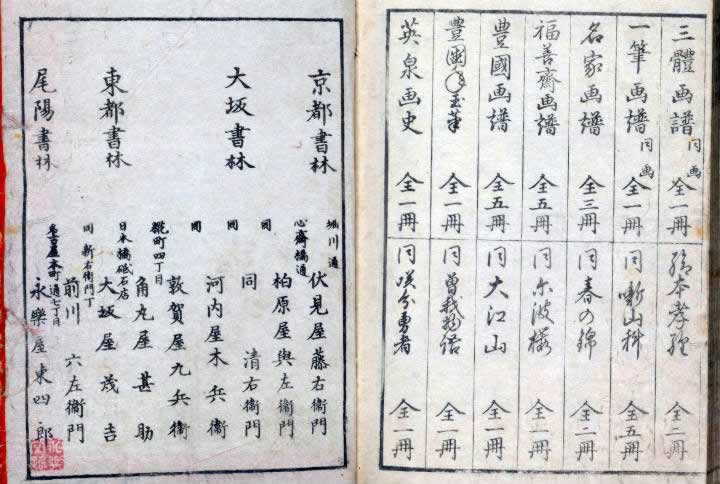 三體画譜 同画 全一冊
一筆画譜 同画 全一冊
名家画譜 全三冊
福善齋画譜 全五冊
豊國画譜 全五冊
豊國年玉筆 全一冊
英泉画史 全一冊
絵本孝經 全二冊
同 新山科 全五冊
同 春の錦 全二冊
同 尓波桜 全二冊
同 大江山 全一冊
同 曽我物語 全一冊
同 咲分勇者 全一冊
京都書林
堀川通
伏見屋藤右衞門
大坂書林
心齋橋通
柏原屋與左衞門
同
同 清右衞門
同
河内屋木兵衞
同
敦賀屋九兵衞
東都書林
麹町四丁目
角丸屋甚助
日本橋砥石店
大坂屋茂吉
同 新右衞門丁
前川六左衞門
尾陽書林
名古屋本町通七丁目
永樂屋東四郎